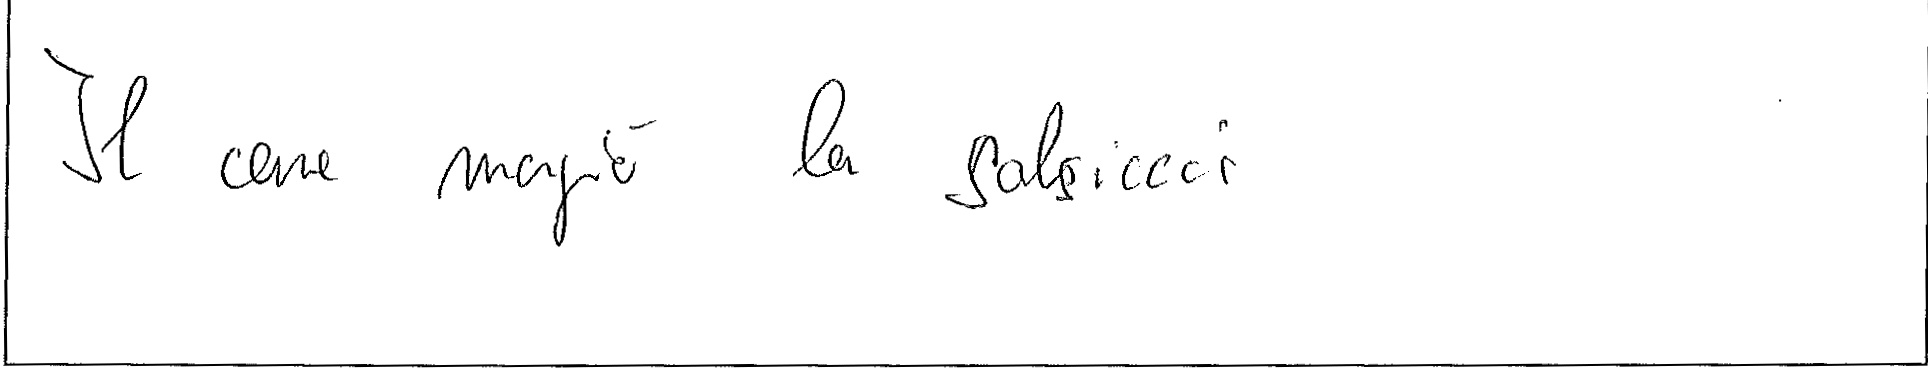 Il cane magiò la salsiccci